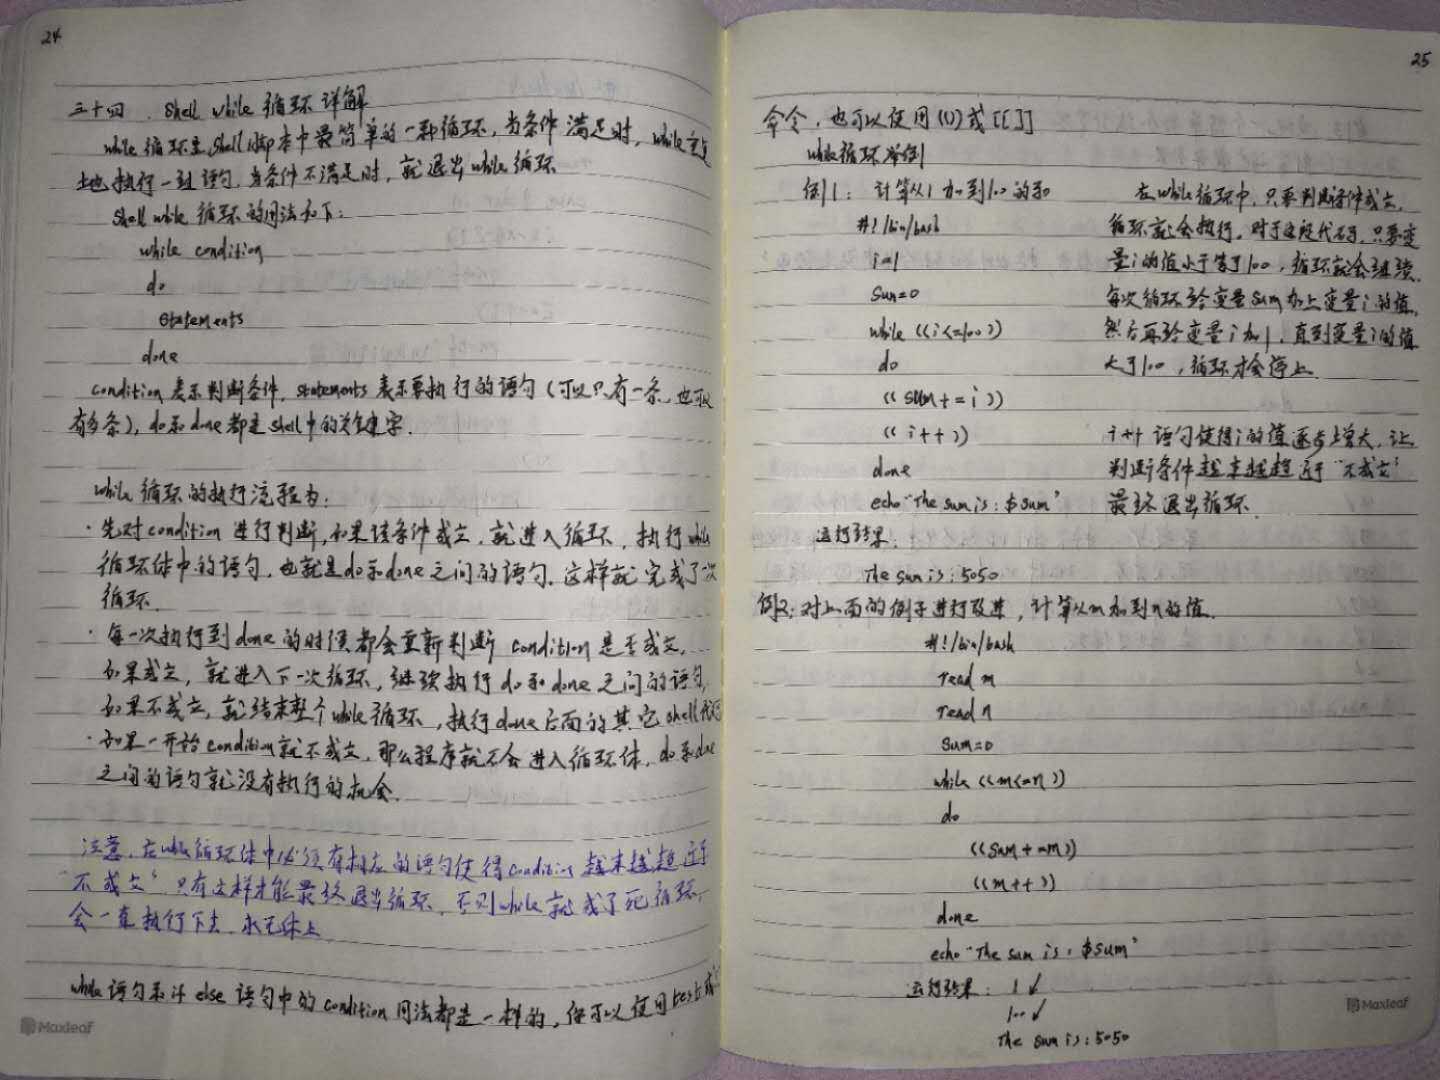 24
三十四、Shell while 循环详解
while循环是Shell脚本中最简单的一种循环，当条件满足时，while重复
地执行一组语句，当条件不满足时，就退出while循环
Shell while 循环的用法如下：
while condition
do
statements
done
condition表示判断条件，statements表示要执行的语句(可以只有一条，也可以
有多条)，do和done都是shell中的关键字.
while 循环的执行流程为：
·先对condition进行判断，如果该条件成立，就进入循环，执行while
循环体中的语句，也就是do和done之间的语句，这样就完成了一次
循环.
·每一次执行到done的时候都会重新判断 condition是否成立，
如果成立，就进入下一次循环，继续执行do和done之间的语句，
如果不成立，就结束整个while循环，执行done后面的其它shell代码
·如果一开始condition就不成立，那么程序就不会进入循环体，do和done
之间的语句就没有执行的机会.
注意，在while循环体中必须有相应的语句使得condition越来越趋近于
"不成立"，只有这样才能最终退出循环，否则while就成了死循环，
会一直执行下去，永无休止
while语句和if else语句中的condition用法都是一样的，你可以使用test或[]
Maxleaf
25
命令，也可以使用(())或[[]]
while循环举例
例1： 计算从1加到100的和
#!/bin/bash
i=1
sum=0
while ((i<=100))
do
((sum+=i))
((i++))
done
echo "The sum is: $sum"
在while循环中，只要判断条件成立，
循环就会执行。对于这段代码，只要变
量i的值小于等于100，循环就会继续.
每次循环给变量sum加上变量i的值，
然后再给变量i加1，直到变量i的值
大于100，循环才会停止.
i++语句使得i的值逐步增大，让
判断条件越来越趋近于"不成立"
最终退出循环.
运行结果：
The sum is: 5050
例2：对上面的例子进行改进，计算从m加到n的值.
#!/bin/bash
read m
read n
sum=0
while ((m<=n))
do
((sum+=m))
((m++))
done
echo "The sum is: $sum"
运行结果： 1↙
100↙
The sum is: 5050
Maxleaf